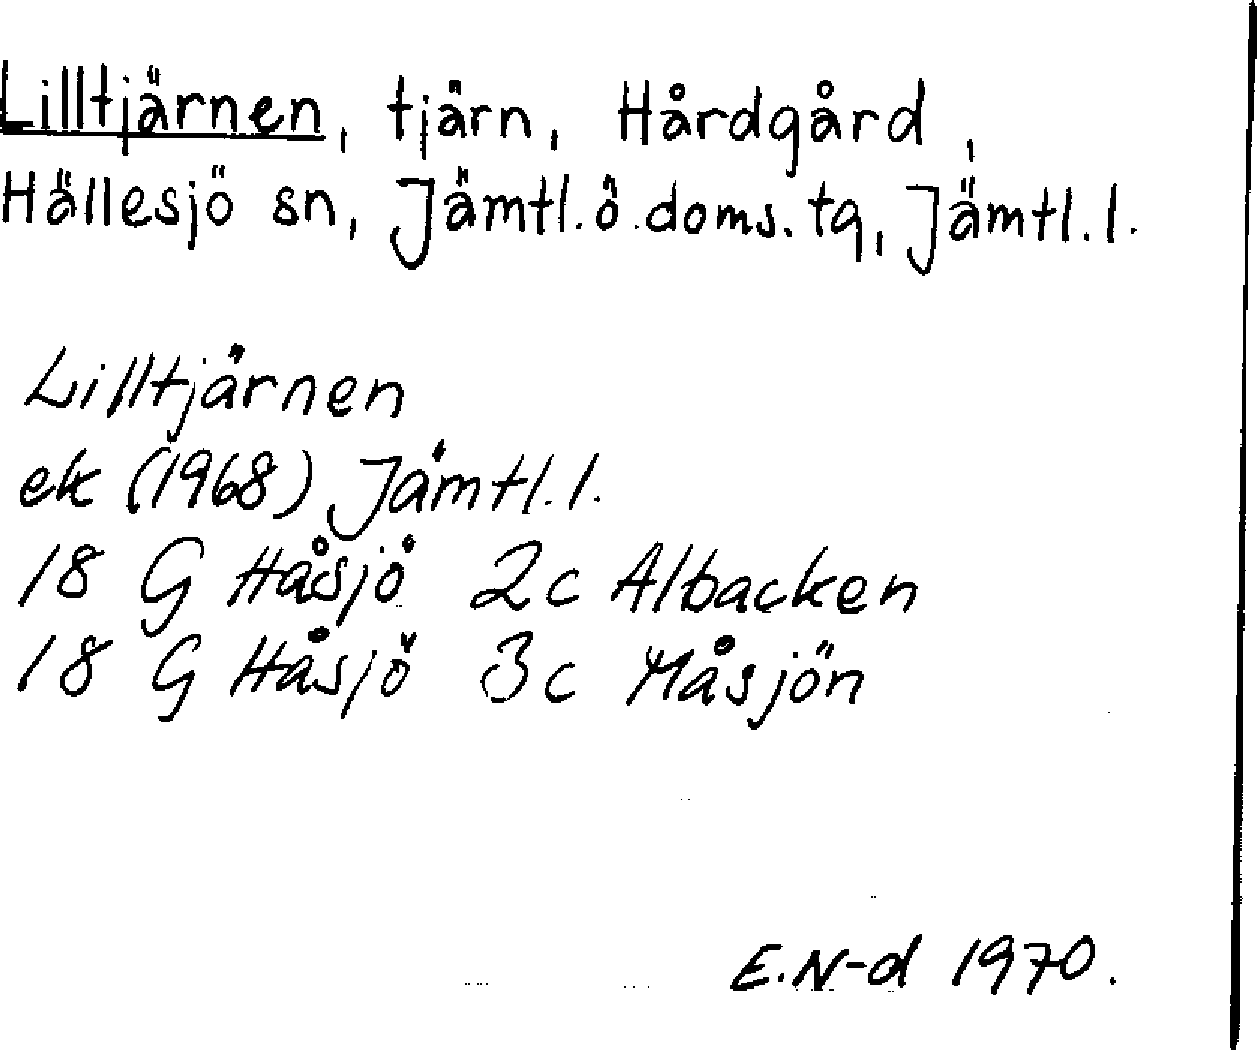 Lilltjärnen, tjärn, Hårdgård,
Hällesjö sn, Jämtl.ö.doms.tg, Jämtl.l.
Lilltjärnen
ek (1968) Jämtl.l.
18 G Håsjö 2c Albacken
18 G Håsjö 3c Måsjön
E.N-d 1970.